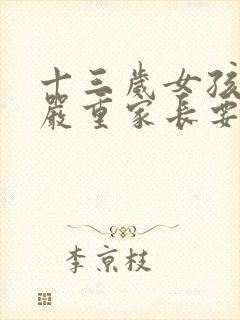 十三歲女孩
嚴重家長要
李京枝